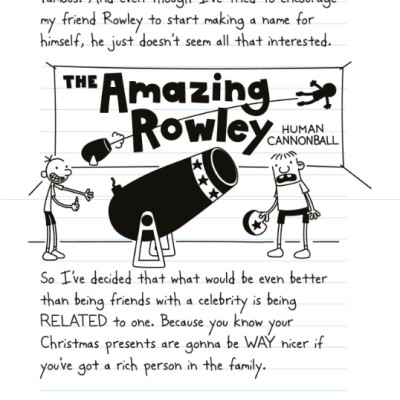 famous. And even though I've tried to encourage
my friend Rowley to start making a name for
himself, he just doesn't seem all that interested.
THE Amazing
Rowley
HUMAN
CANNONBALL
So I've decided that what would be even better
than being friends with a celebrity is being
RELATED to one. Because you know your
Christmas presents are gonna be WAY nicer if
you've got a rich person in the family.